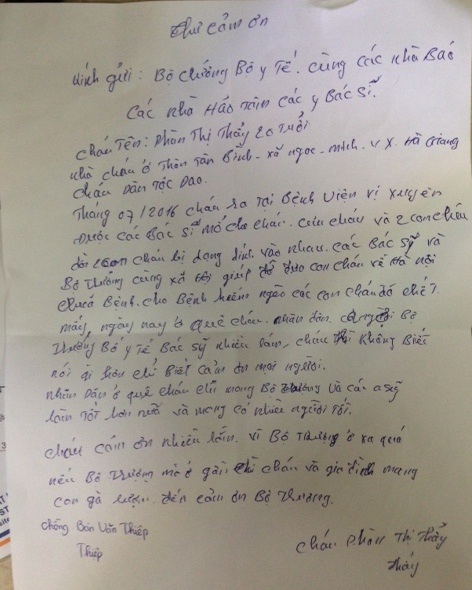 Thư cảm ơn
kính gửi: Bộ trưởng Bộ y Tế. cùng các nhà Báo
Các nhà Hảo tâm các y Bác sĩ.
cháu Tên: Phàn Thị Thảy 20 Tuổi
nhà cháu ở Thôn Tân Bình - xã ngọc - minh. V X. Hà Giang
cháu Dân Tộc Dao.
Tháng 07/2016 cháu ra Tại Bệnh Viện vị xuyên
Được các Bác sĩ mổ cho cháu. cứu cháu và 2 con cháu
con cháu bị dạng dính vào nhau. các Bác sỹ và
Bộ Trưởng cùng xã hội giúp đỡ đưa con cháu về Hà nội
chữa Bệnh. cho Bệnh hiểm ngèo các con cháu đỡ chết.
mấy ngày nay ở quê cháu. nhân dân. Bộ
Trưởng Bộ y Tế Bác sỹ nhiều lắm. cháu Không Biết
nói gì hơn chỉ Biết cảm ơn mọi người.
nhân Dân ở quê cháu chỉ mong Bộ Trưởng và các sỹ
làm Tốt hơn nữa và mong có nhiều người Tốt.
cháu cảm ơn nhiều lắm. vì Bộ Trưởng ở xa quá
nếu Bộ Trưởng mà ở gần thì cháu và gia đình mang
con gà đến cảm ơn Bộ Trưởng.
chồng Bàn Văn Thiệp
Thiệp
cháu Phàn Thị Thảy
Thảy